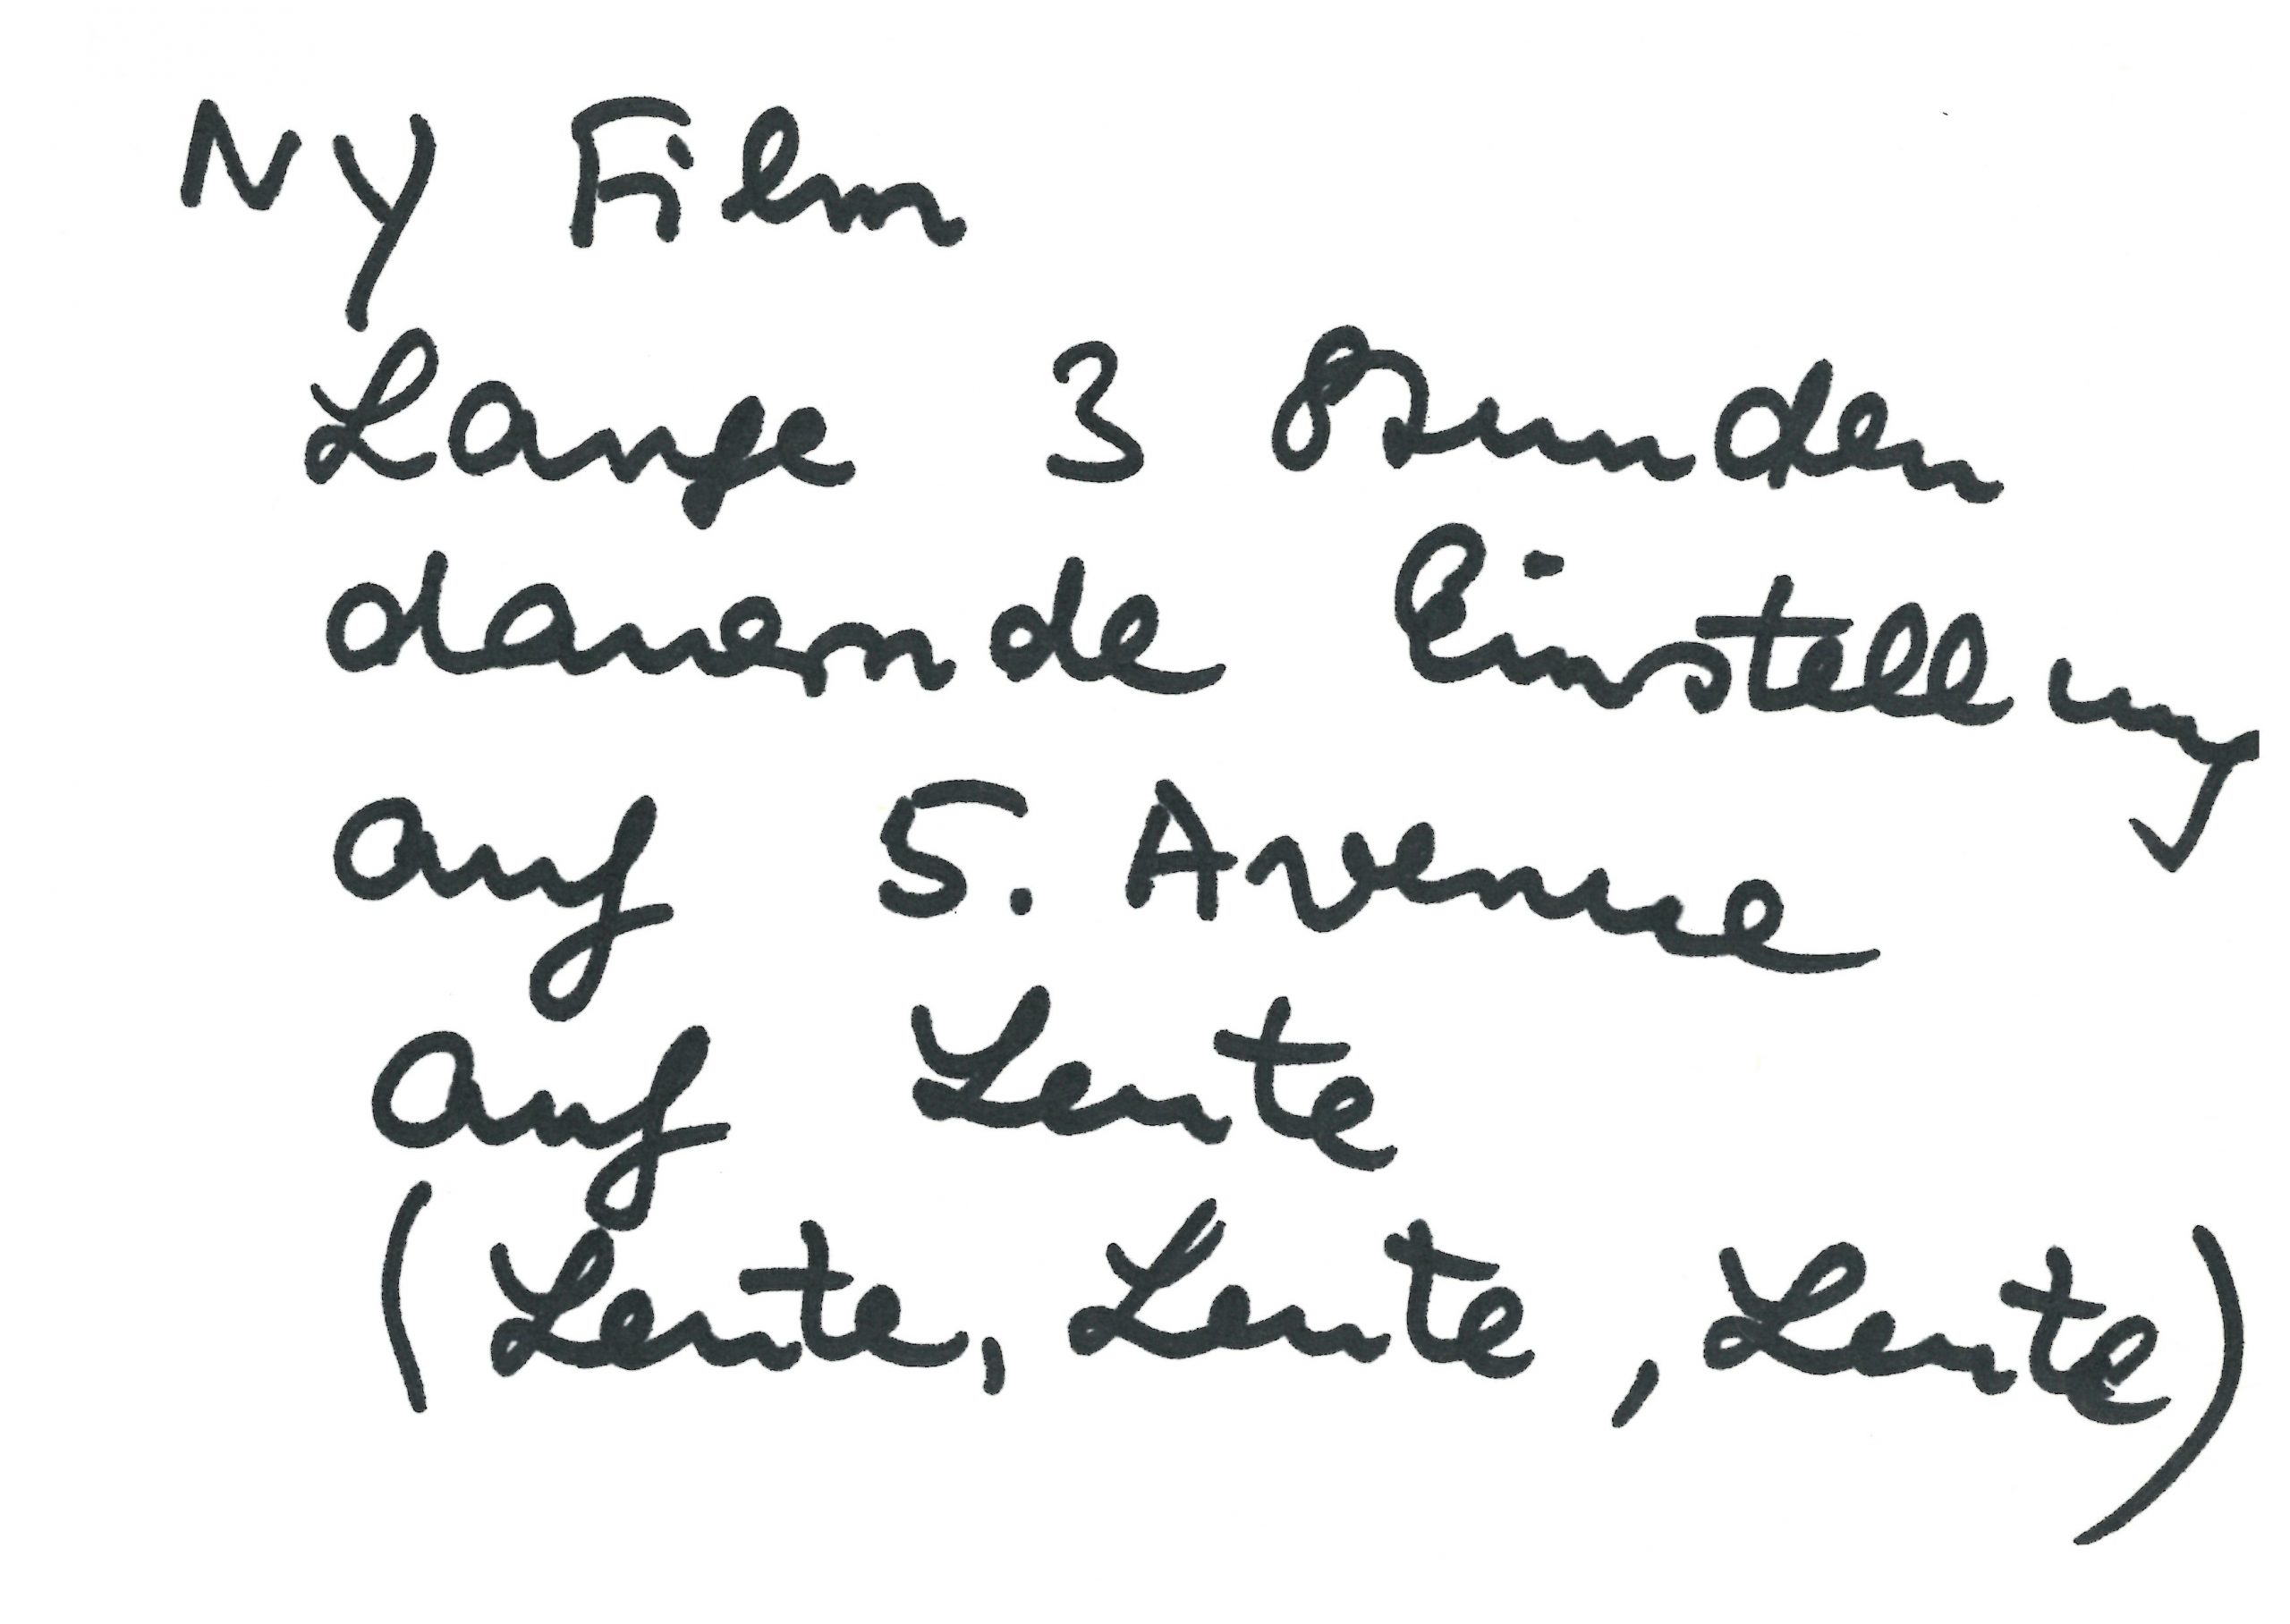 NY Film
Lange 3 Stunden
dauernde Einstellung
auf 5. Avenue
auf Leute
(Leute, Leute, Leute)